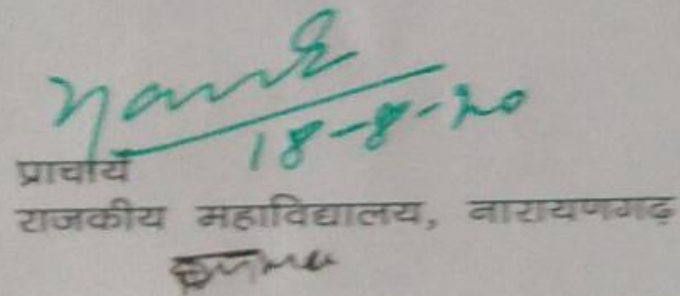 18-8-20
प्राचार्य
राजकीय महाविद्यालय, नारायणगढ़